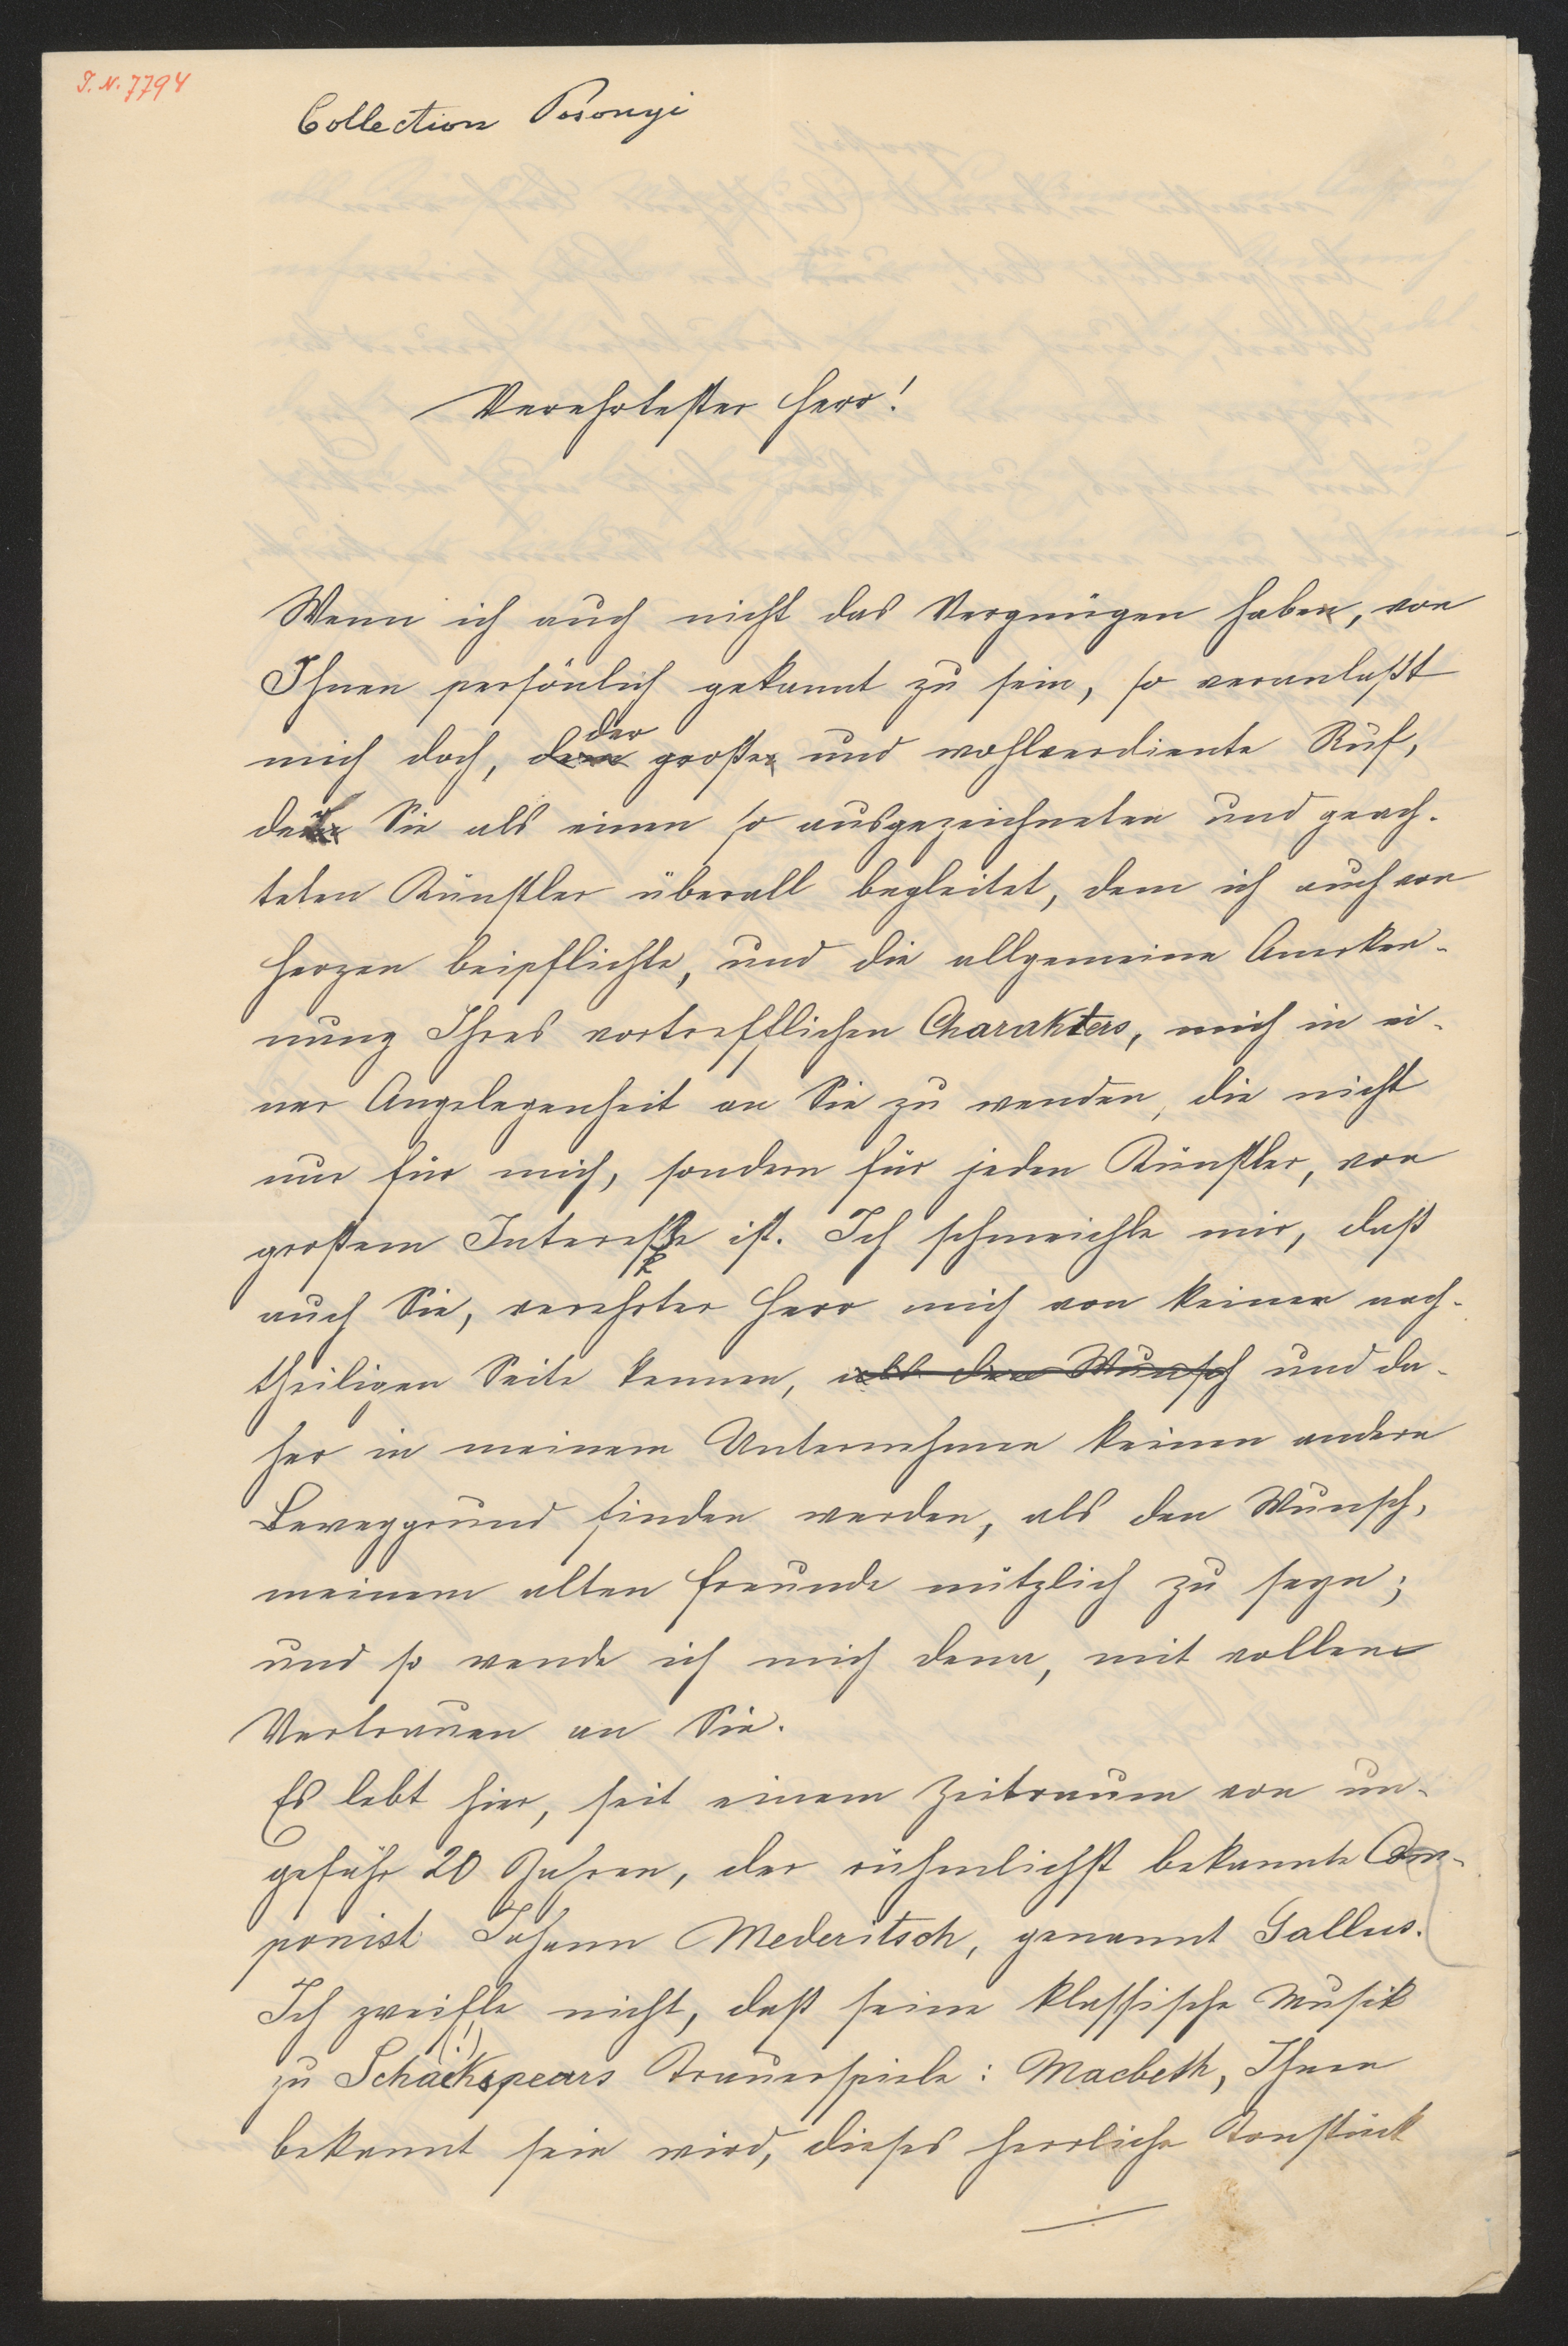 I. N. 7794
Collection Posonyi
Verehrtester Herr!
Wenn ich auch nicht das Vergnügen habe, von
Ihnen persönlich gekannt zu sein, so veranlaßt
mich doch, der große und wohlverdiente Ruf,
der Sie als einen so ausgezeichneten und geach-
teten Künstler überall begleitet, dem ich auch von
Herzen beipflichte, und die allgemeine Anerken-
nung Ihres vortrefflichen Charakters, mich in ei-
ner Angelegenheit an Sie zu wenden, die nicht
nur für mich, sondern für jeden Künstler, von
großem Interesse ist. Ich schmeichle mir, daß
auch Sie, verehrter Herr mich von keiner nach-
theiligen Seite kennen, als den Wunsch und da-
her in meinem Unternehmen keinen andern
Beweggrund finden werden, als den Wunsch,
meinem alten Freunde nützlich zu seyn;
und so wende ich mich denn, mit vollem
Vertrauen an Sie.
Es lebt hier, seit einem Zeitraum von un-
gefähr 20 Jahren, der rühmlichst bekannte Com-
ponist Johann Mederitsch, genannt Gallus.
Ich zweifle nicht, daß seine klassische Musik
zu Schäckspears (!) Trauerspiele: Macbeth, Ihnen
bekannt sein wird, dieses herrliche Tonstück